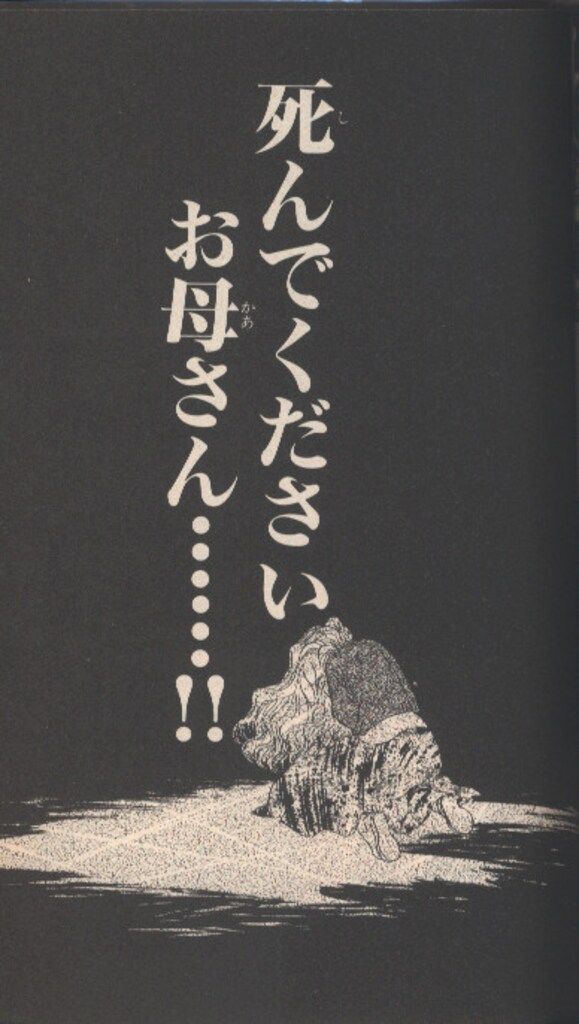 死んでください
お母さん……!!